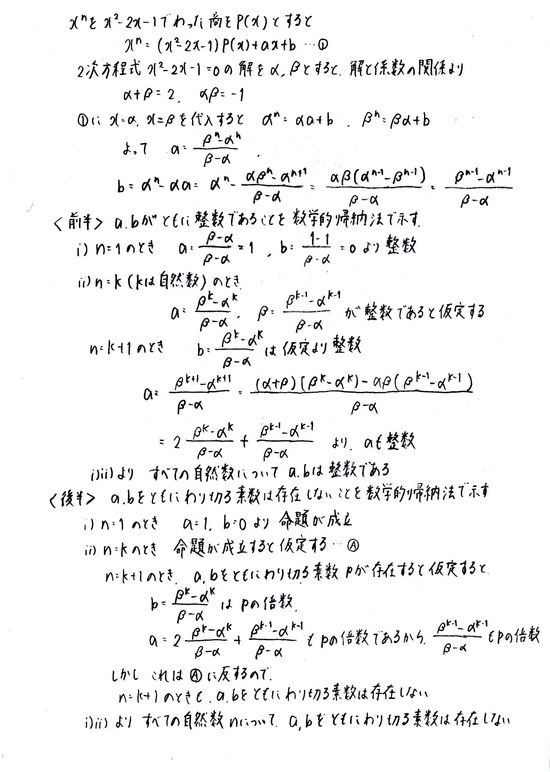 x^n を x²-2x-1 でわった商を P(x) とすると
x^n = (x²-2x-1)P(x)+ax+b …①
2次方程式 x²-2x-1=0 の解を α, β とすると、解と係数の関係より
α+β=2, αβ=-1
①に x=α, x=β を代入すると α^n=αa+b, β^n=βa+b
よって a=(β^n-α^n)/(β-α),
b=α^n-αa=α^n-(αβ^n-α^{n+1})/(β-α)=αβ(α^{n-1}-β^{n-1})/(β-α)=(β^{n-1}-α^{n-1})/(β-α)
<前半> a, b がともに整数であることを数学的帰納法で示す.
i) n=1 のとき a=(β-α)/(β-α)=1, b=(1-1)/(β-α)=0 より 整数
ii) n=k (kは自然数) のとき
a=(β^k-α^k)/(β-α), β=(β^{k-1}-α^{k-1})/(β-α) が整数であると仮定する
n=k+1 のとき b=(β^k-α^k)/(β-α) は仮定より整数
a=(β^{k+1}-α^{k+1})/(β-α)=((α+β)(β^k-α^k)-αβ(β^{k-1}-α^{k-1}))/(β-α)
=2(β^k-α^k)/(β-α)+(β^{k-1}-α^{k-1})/(β-α) より、aも整数
i)ii)より すべての自然数について a, b は整数である
<後半> a, b をともにわり切る素数は存在しないことを数学的帰納法で示す
i) n=1 のとき a=1, b=0 より 命題が成立
ii) n=k のとき 命題が成立すると仮定する …Ⓐ
n=k+1 のとき、a, b をともにわり切る素数 p が存在すると仮定すると、
b=(β^k-α^k)/(β-α) は pの倍数.
a=2(β^k-α^k)/(β-α)+(β^{k-1}-α^{k-1})/(β-α) も pの倍数であるから、(β^{k-1}-α^{k-1})/(β-α) も pの倍数
しかし これは Ⓐ に反するので、
n=k+1 のときも、a, b をともにわり切る素数は存在しない
i)ii) より すべての自然数 n について、a, b をともにわり切る素数は存在しない